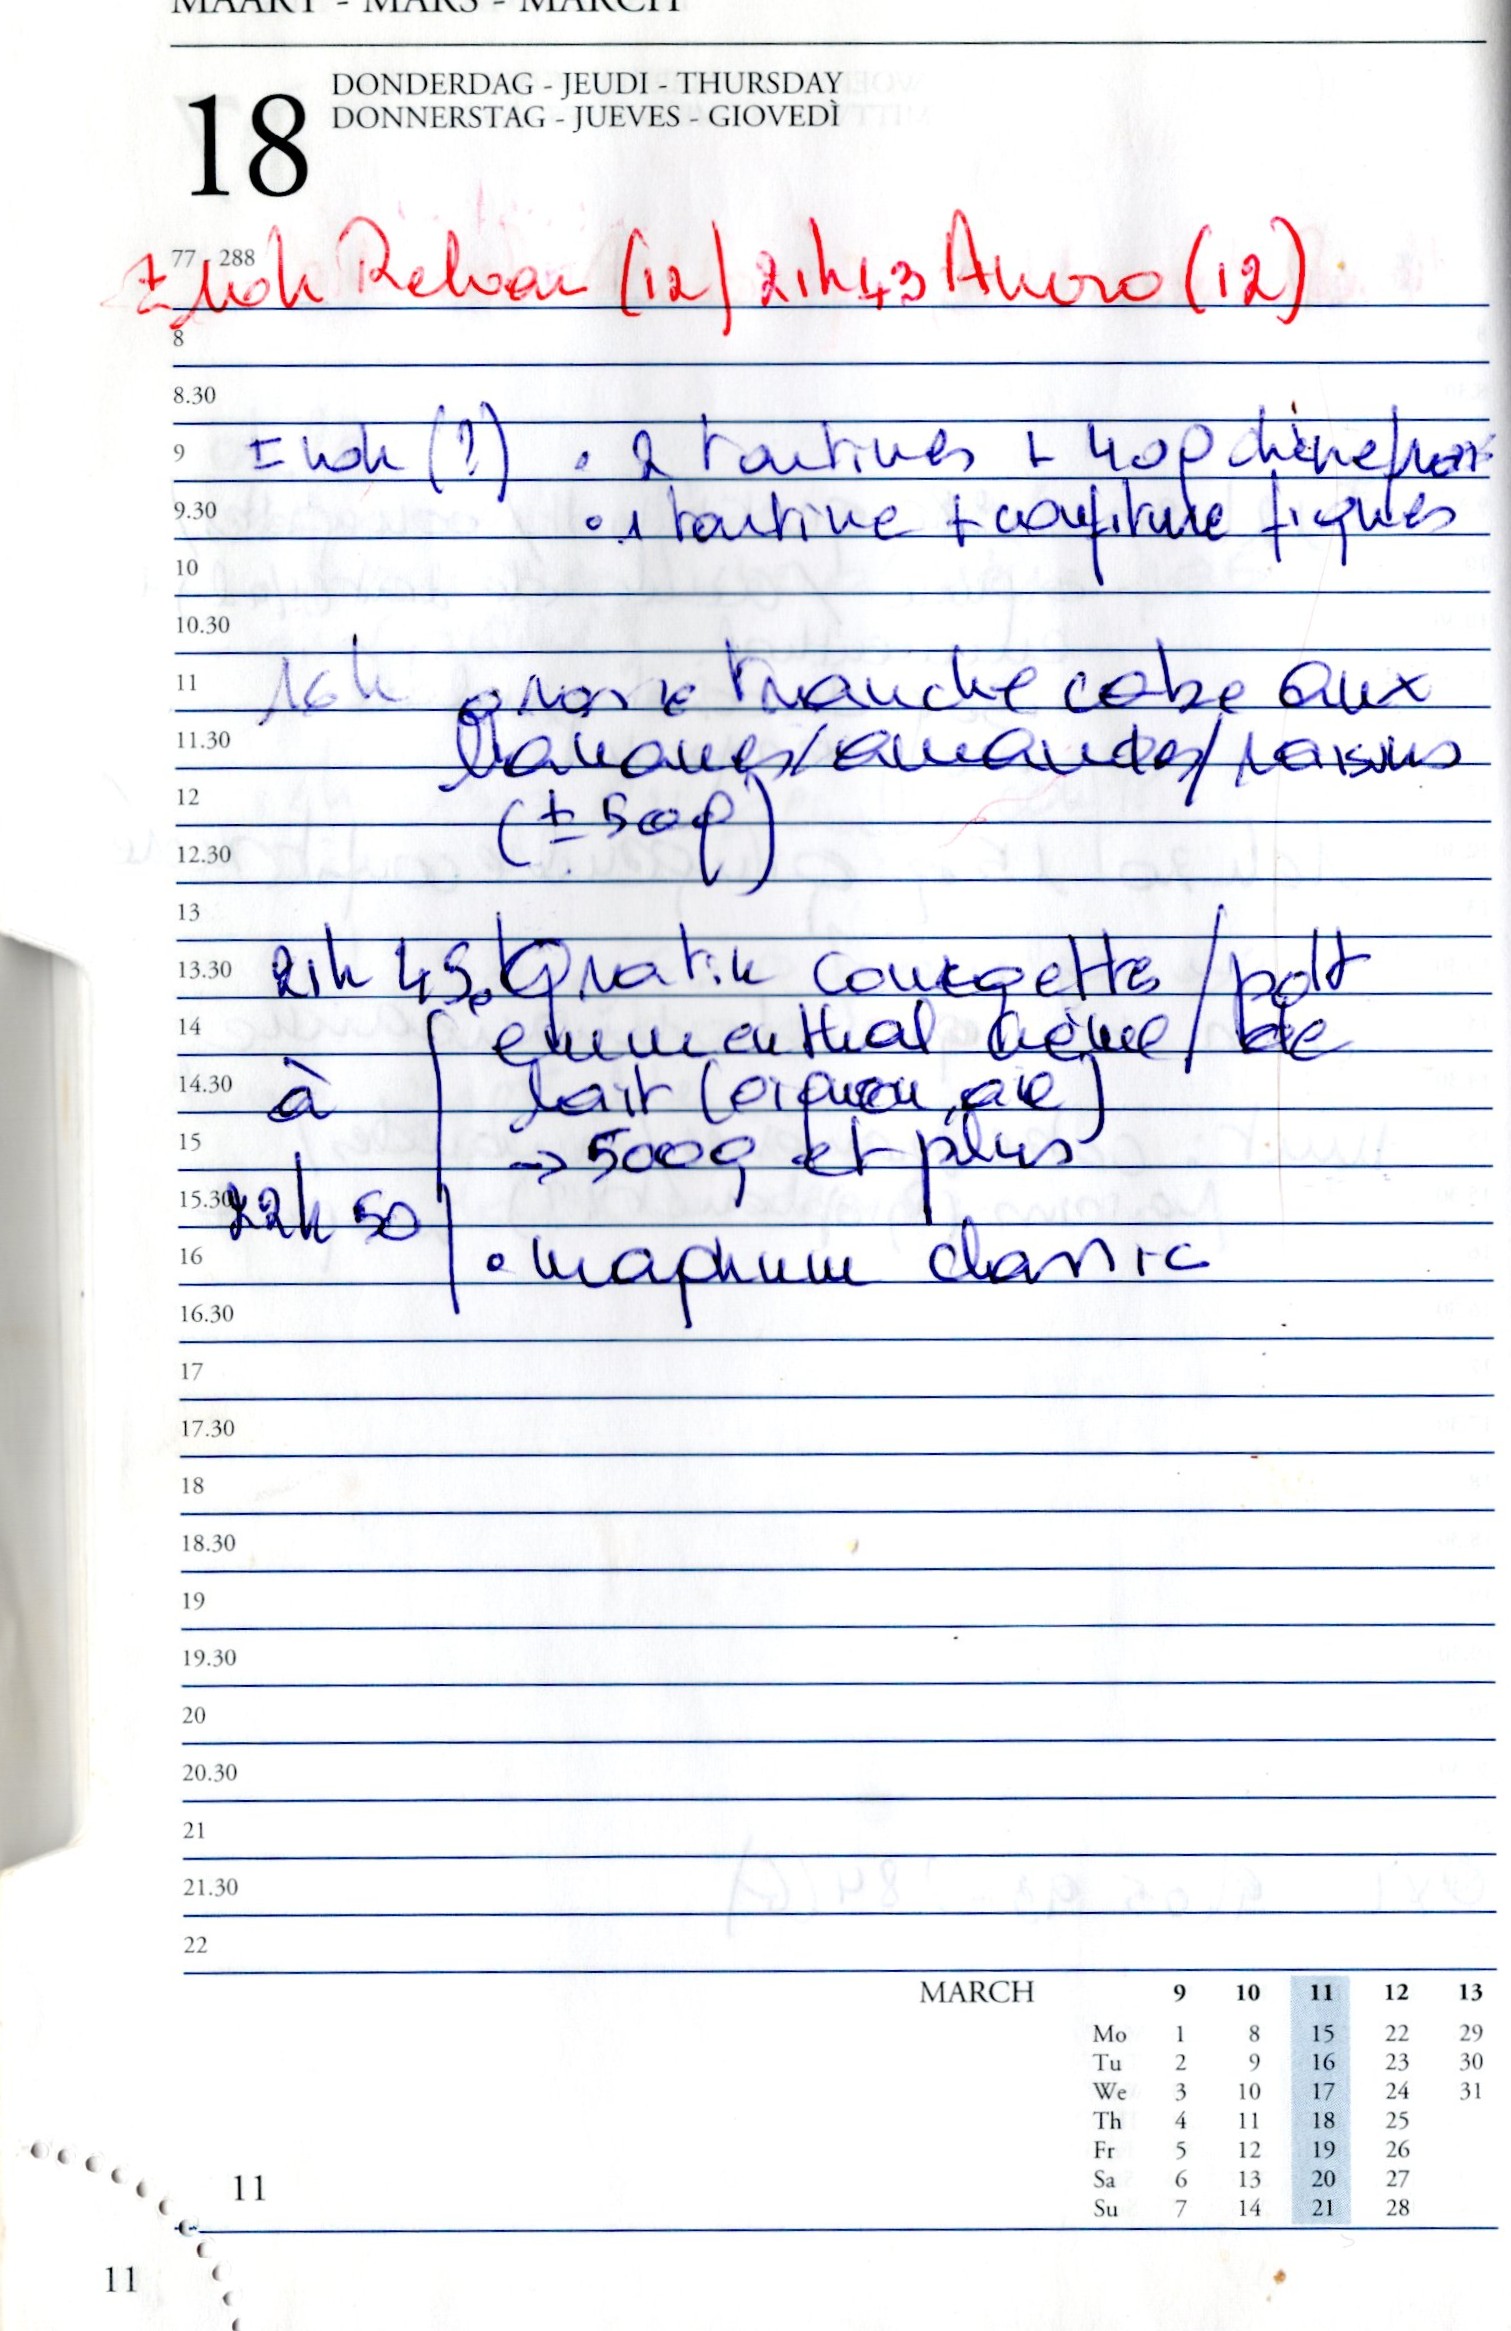 MAART - MARS - MARCH
18
DONDERDAG - JEUDI - THURSDAY
DONNERSTAG - JUEVES - GIOVEDÌ
77 - 288
± (12) 21h43 (12)
8
8.30
9 ± (?) • 2 tartines + 40g chèvre/
9.30 • 1 tartine + confiture figues
10
10.30
11 16h grosse tranche cake aux
11.30 bananes/amandes/raisins
12 (± 50g)
12.30
13
13.30 21h 45 • Gratin courgette/pdt
14 emmenthal crème/de
14.30 à lait (oignon, ail)
15 → 500g et plus
15.30 22h 50
16 • magnum classic
16.30
17
17.30
18
18.30
19
19.30
20
20.30
21
21.30
22
MARCH 9 10 11 12 13
Mo 1 8 15 22 29
Tu 2 9 16 23 30
We 3 10 17 24 31
Th 4 11 18 25
Fr 5 12 19 26
Sa 6 13 20 27
Su 7 14 21 28
11
11